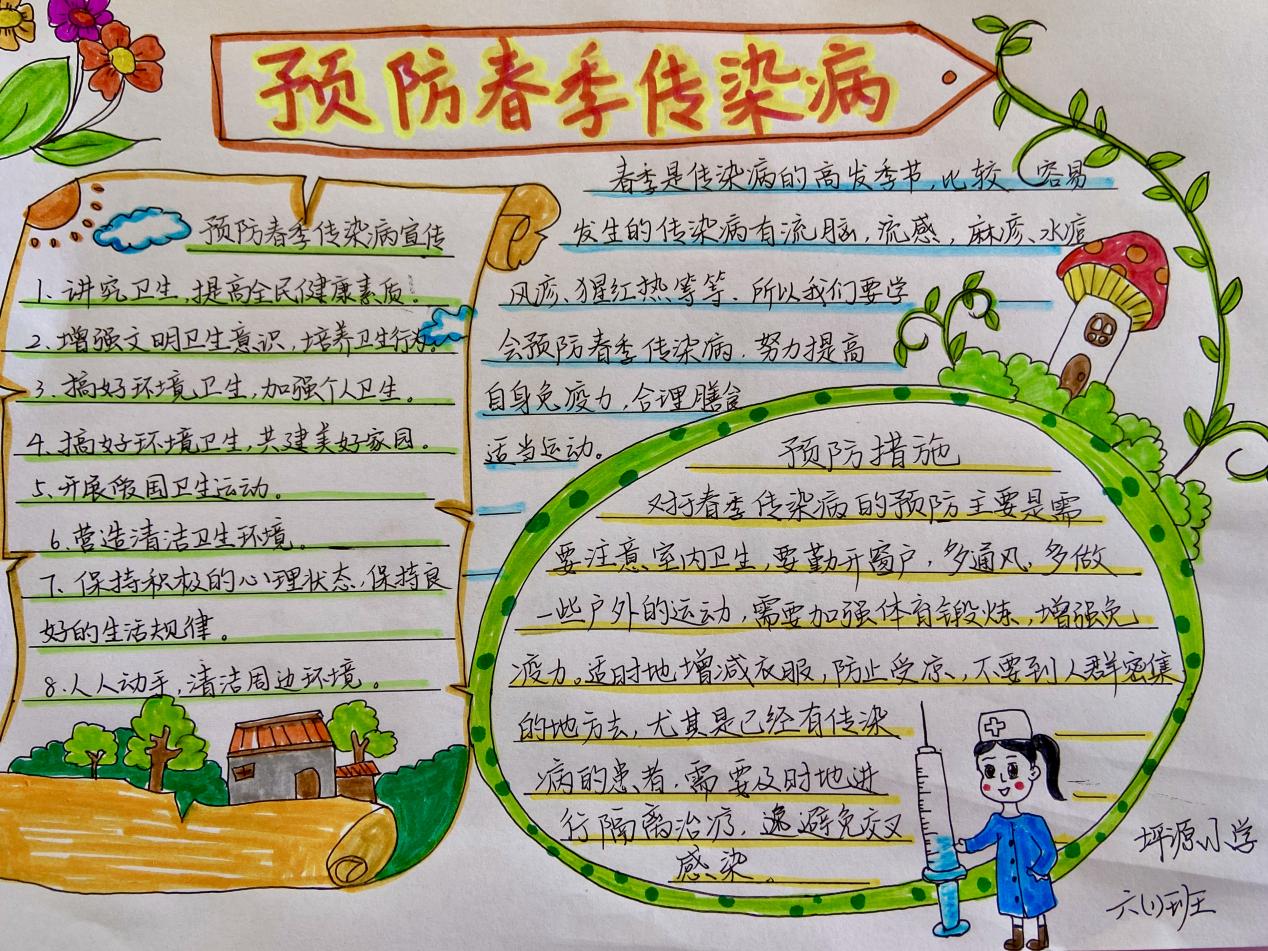 预防春季传染病
预防春季传染病宣传
1. 讲究卫生,提高全民健康素质。
2. 增强文明卫生意识,培养卫生行为。
3. 搞好环境卫生,加强个人卫生。
4. 搞好环境卫生,共建美好家园。
5. 开展爱国卫生运动。
6. 营造清洁卫生环境。
7. 保持积极的心理状态,保持良
好的生活规律。
8. 人人动手,清洁周边环境。
春季是传染病的高发季节,比较 容易
发生的传染病有流脑,流感,麻疹、水痘
风疹、猩红热等等.所以我们要学
会预防春季传染病.努力提高
自身免疫力,合理膳食
适当运动。
预防措施
对于春季传染病的预防主要是需
要注意室内卫生,要勤开窗户,多通风,多做
一些户外的运动,需要加强体育锻炼,增强免
疫力。适时地增减衣服,防止受凉、不要到人群密集
的地方去,尤其是已经有传染
病的患者.需要及时地进
行隔离治疗,避免交叉
感染。
坪源小学
六(1)班